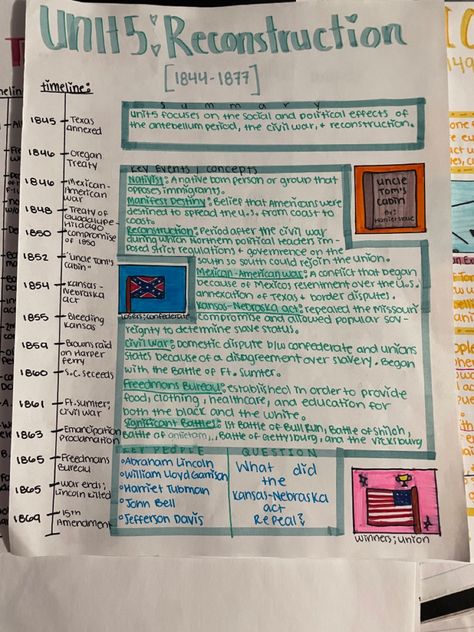 Unit 5: Reconstruction
[1844-1877]
timeline:
1845 Texas annexed
1846 Oregan Treaty
1846 Mexican-American war
1848 Treaty of Guadalupe-Hildago
1850 compromise of 1850
1852 "uncle Tom's cabin"
1854 Kansas-Nebraska act
1855 Bleeding Kansas
1859 Browns raid on Harper ferry
1860 S.C. seceeds
1861 Ft. sumter; civil war
1863 Emancipation Proclamation
1865 Freedmans Bureau
1865 war ends; lincoln killed
1869 15th Amendment
summary
unit 5 focuses on the social and political effects of
the antebellum period, the civil war, + reconstruction.
Key Events / Concepts
Nativist: A native born person or group that
opposes immigrants.
Manifest Destiny: Belief that Americans were
destined to spread the U.S. from coast to
coast.
Reconstruction: Period after the civil war
during which Northern political leaders im-
posed strict regulations + governence on the
south so south could rejoin the union.
Mexican-American war: A conflict that began
because of Mexicos resentment over the U.S.
annexation of Texas + border disputes.
Kansas-Nebraska act: repealed the missouri
compromise and allowed popular sov-
reignty to determine slave status.
Civil war: domestic dispute b/w confederate and unions
states because of a disagreement over slavery. Began
with the Battle of Ft. Sumter.
Freedmans Bureau: established in order to provide
food, clothing, healthcare, and education for
both the black and the white.
Significant Battles: 1st Battle of Bull Run, Battle of Shiloh,
Battle of antietam, Battle of Gettysburg, and the Vicksburg
uncle
Tom's
cabin
losers; confederate
KEY PEOPLE
Abraham Lincoln
William Lloyd Garrison
Harriet Tubman
John Bell
Jefferson Davis
QUESTION
What did
the
Kansas-Nebraska
act
Repeal?
winners; union